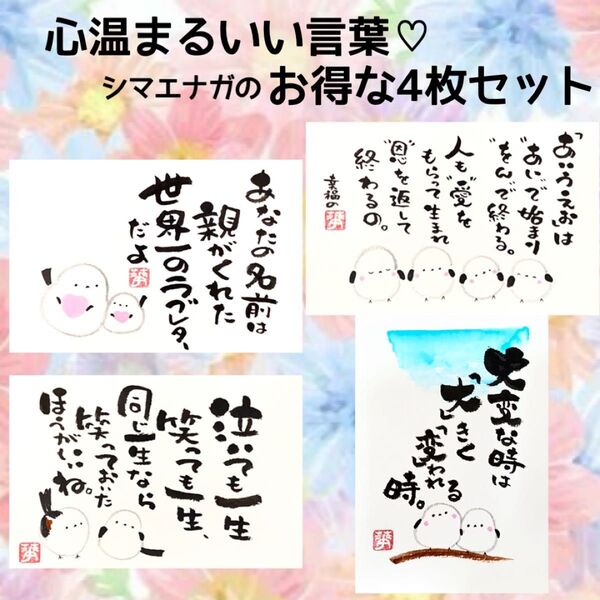 心温まるいい言葉♡
シマエナガのお得な4枚セット
あなたの名前は
親がくれた
世界一のラブレター
だよ
「あいうえお」は
"あい"で始まり
"をん"で終わる。
人も"愛"を
もらって生まれ
"恩"を返して
終わるの。
幸福の
泣いても一生
笑っても一生、
同じ一生なら
笑っておいた
ほうがいいね。
大変な時は
「大」きく
「変」われる
時。